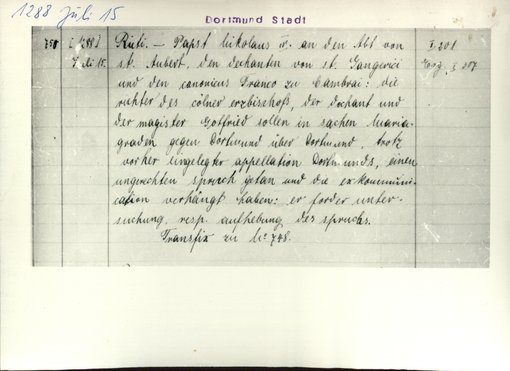 1288 Juli 15
Dortmund Stadt
751 [1288] Rieti. – Papst Nikolaus IV. an den Abt von I 201
Juli 15. st. Aubert, den dechanten von st. Gangerici Erg. I 207
und den canonicus Franco zu Cambrai: die
richter des cölner erzbischofs, der dechant und
der magister Gottfried sollen in sachen Maria-
graden gegen Dortmund über Dortmund, trotz
vorher eingelegter appellation Dortmunds, einen
ungerechten spruch getan und die exkommuni-
cation verhängt haben: er fordert unter-
suchung resp. aufhebung des spruchs.
Transfix zu No 748.